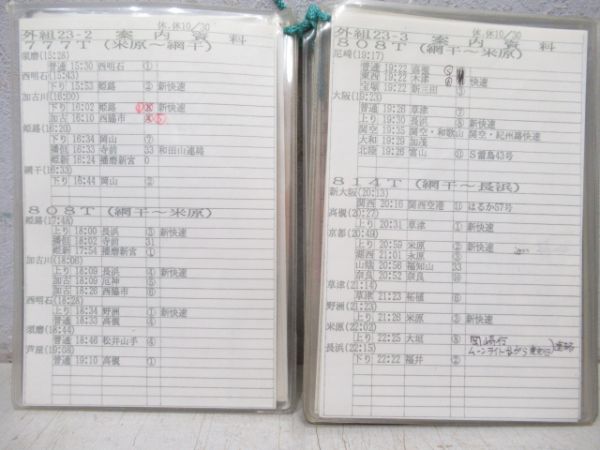 休.休10/30
外組23-2 案内資料
777T (米原～網干)
須磨(15:28)
普通 15:30 西明石 ①
西明石(15:43)
下り 15:53 姫路 ② 新快速
加古川(16:00)
下り 16:02 姫路 新快速
加古 16:10 西脇市 ④ ⑤
姫路(16:20)
下り 16:34 岡山 ⑦
播但 16:33 寺前 33 和田山連絡
姫新 16:24 播磨新宮 0
網干(16:33)
下り 16:44 岡山 ②
808T (網干～米原)
姫路(17:4A)
上り 18:00 長浜 ③ 新快速
播但 18:02 寺前 31
姫新 17:54 播磨新宮 ①
加古川(18:06)
上り 18:09 長浜 ④ 新快速
加古 18:09 厄神 ⑤
加古 18:26 西脇市 ⑥
西明石(18:28)
上り 18:34 野洲 ① 新快速
普通 18:33 高槻 ④
須磨(18:44)
普通 18:46 松井山手 ④
芦屋(19:08)
普通 19:10 高槻 ①
休.休10/30
外組23-3 案内資料
808T (網干～米原)
尼崎(19:17)
普通 19:22 高槻
東西 19:22 木津 快速
宝塚 19:22 新三田 ③
大阪(19:23)
普通 19:26 草津 ⑦
上り 19:30 長浜 ⑧ 新快速
関空 19:35 関空・和歌山 関空・紀州路快速
大和 19:29 加茂
北陸 19:26 富山 ⑪ S雷鳥43号
814T (網干～長浜)
新大阪(20:13)
関西 20:16 関西空港 ⑪ はるか57号
高槻(20:27)
上り 20:31 草津 ① 新快速
京都(20:49)
上り 20:59 米原 ② 新快速
湖西 21:01 永原 ③
山陰 20:56 福知山 33
奈良 20:52 奈良 ⑩
草津(21:14)
草津 21:23 柘植 ⑥
野洲(21:23)
上り 21:28 米原 ③ 新快速
米原(22:02)
上り 22:25 大垣 ⑧
ムーンライトながら
長浜(22:15)
下り 22:22 福井 ②